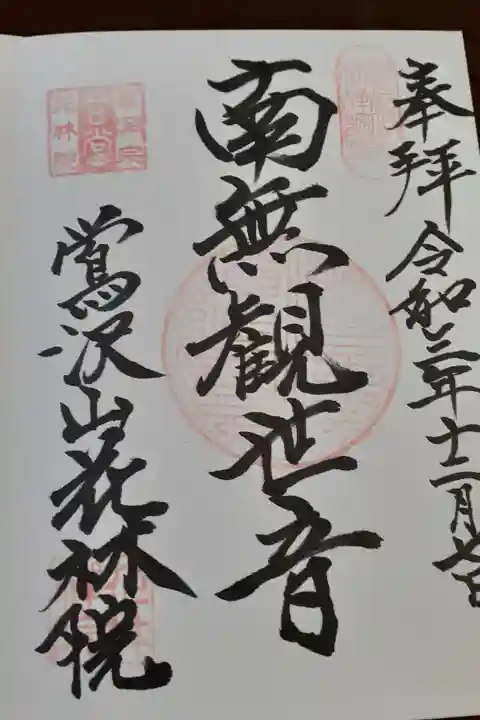 奉拝 令和三年十二月七日
南無観世音
鶯沢山花林院